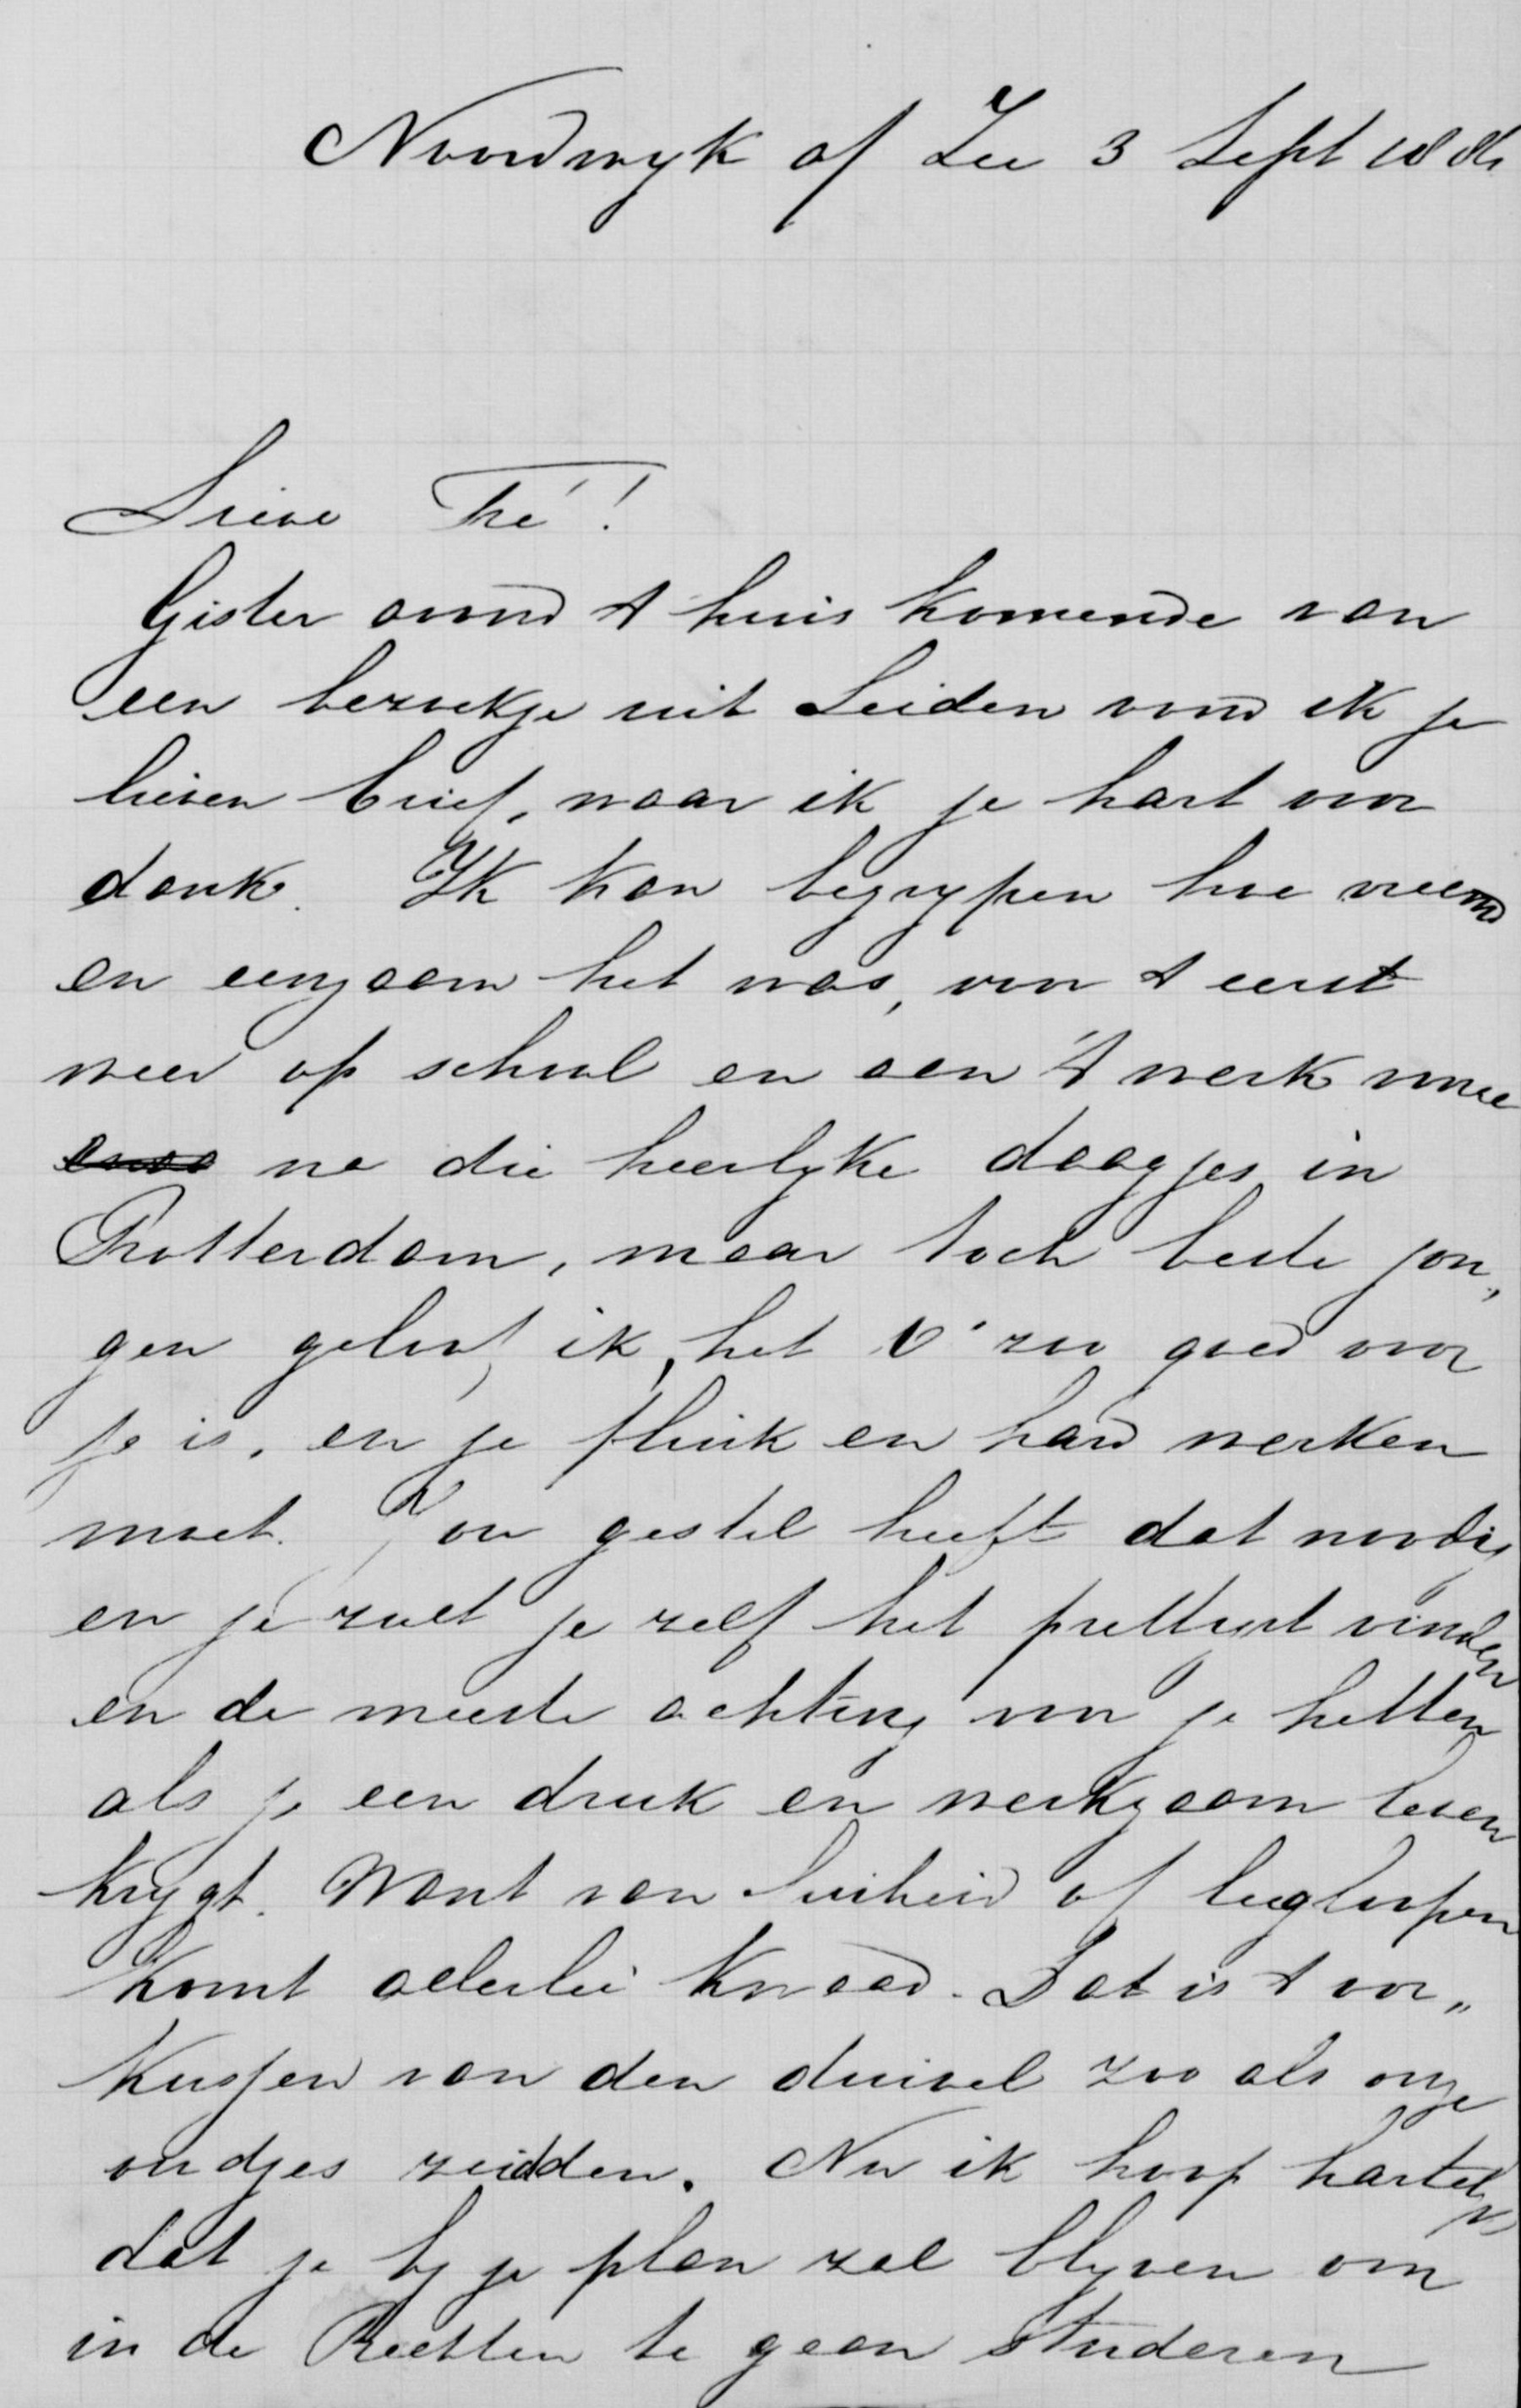 Noordwyk a/ Zee 3 Sept 18
Lieve Thé!
Gister avond t huis komende van
een bezoekje uit Leiden vond ik je
lieven brief, waar ik je hart voor
dank. Ik kan begrypen hoe vreemd
en eenzaam het was, voor t eerst
weer op school en aan 't werk
na die heerlyke daagjes in
Rotterdam, maar toch beste jon„
gen geloof ik, het zoo goed voor
je is, en je flink en hard werken
moet. Jou gestel heeft dat noodig
en je zult je zelf het prettigst vinden
en de meeste achting voor je hebben
als je een druk en werkzaam leven
krygt. Want van luiheid of leegloopen
komt allerlei kwaad. Dat is t oor„
kussen van den duivel zoo als onze
oudjes zeidden. Nu ik hoop hartelyk
dat je by je plan zal blyven om
in de Rechten te gaan studeren